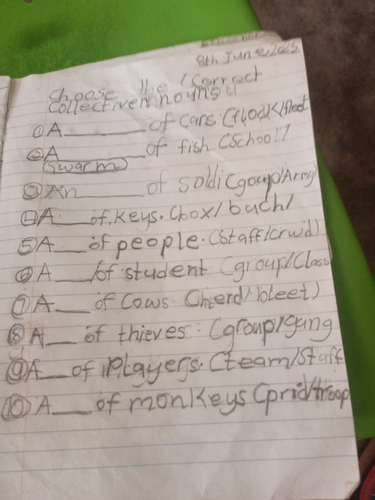 8th June 2025
Choose the Correct
Collective nouns
① A ______ of cars (flock/fleet
② A ______ of fish (School/
Swarm)
③ An ______ of soldi (goup/Army)
④ A ___ of keys. (box/buch/
⑤ A ___ of people. (staff/crwd)
⑥ A ___ of student (group/Class
⑦ A ___ of Cows. (herd/bleet)
⑧ A ___ of thieves: (group/gang
⑨ A ___ of Players. (team/Staff
⑩ A ___ of monkeys (prid/troop